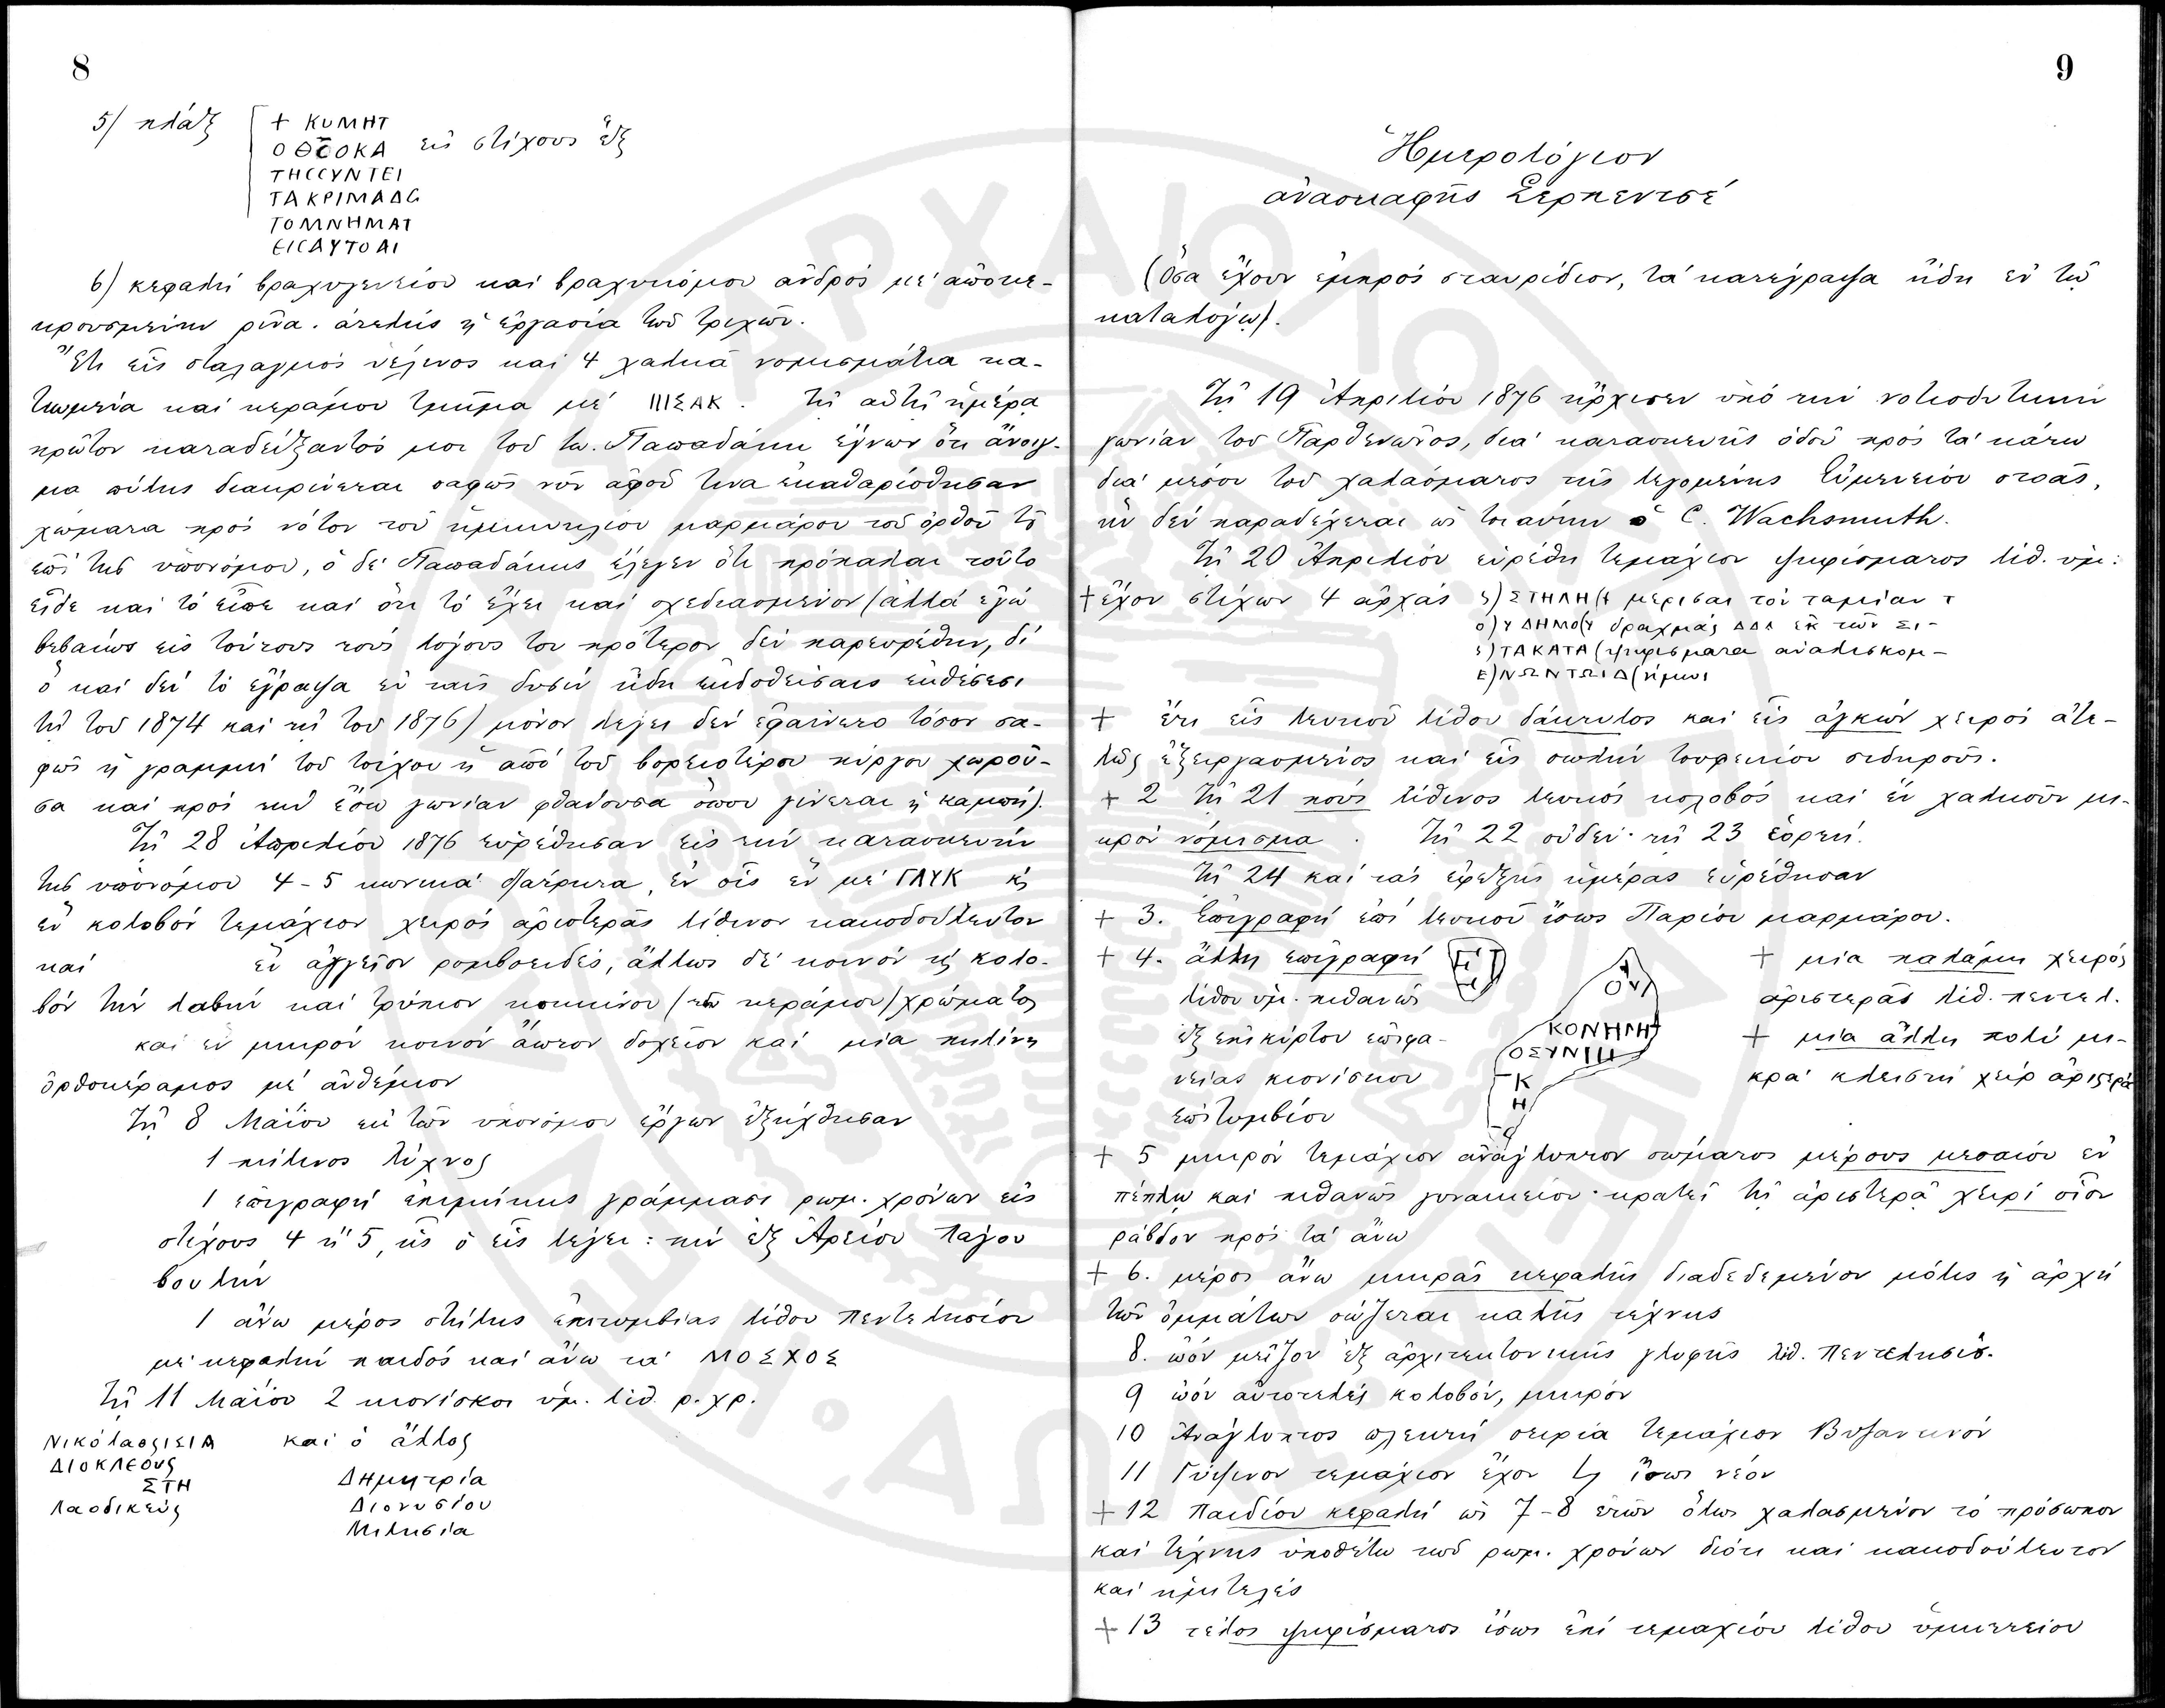 8
5) πλάξ + ΚΥΜΗΤ
ΟΘΣΟΚΑ εἰς στίχους ἕξ
ΤΗССΥΝΤΕΙ
ΤΑΚΡΙΜΑΔΟ
ΤΟΜΝΗΜΑΤ
ΕΙСΑΥΤΟΑΙ
6) κεφαλή βραχυγενείου καί βραχυκόμου ἀνδρός μέ ἀποκε-
κρουσμένην ρῖνα. ἀτελής ἡ ἐργασία τῶν τριχῶν.
Ἔτι εἷς σταλαγμός ὑέλινος καί 4 χαλκᾶ νομισμάτια κα-
τιωμένα καί κεράμου τμῆμα μέ ΙΙΙΣΑΚ. Τῇ αὐτῇ ἡμέρᾳ
πρῶτον καταδείξαντός μοι τοῦ κυ. Παπαδάκη ἔγνων ὅτι ἄνοιγ-
μα πύλης διακρίνεται σαφῶς νῦν ἀφοῦ τινα ἐκαθαρίσθησαν
χώματα πρός νότον τοῦ ὑμηττείου μαρμάρου τοῦ ὀρθοῦ τοῦ
ἐπί τῆς ὑπονόμου, ὁ δέ Παπαδάκης ἔλεγεν ὅτι πρόπαλαι τοῦτο
εἶδε καί τό εἶπε καί ὅτι τό ἔχει καί σχεδιασμένον (ἀλλά ἐγώ
βεβαίως εἰς τούτους τούς λόγους του πρότερον δέν παρευρέθην, δι'
ὅ καί δέν τό ἔγραψα ἐν ταῖς δυσίν ἤδη ἐκδοθείσαις ἐκθέσεσι
τῇ τοῦ 1874 καί τῇ τοῦ 1876) μόνον λέγει δέν ἐφαίνετο τόσον σα-
φῶς ἡ γραμμή τοῦ τοίχου ἡ ἀπό τοῦ βορειοτέρου πύργου χωροῦ-
σα καί πρός τήν ἔσω γωνίαν φθάνουσα ὅπου γίνεται ἡ καμπή).
Τῇ 28 Ἀπριλίου 1876 εὑρέθησαν εἰς τήν κατασκευήν
τῆς ὑπονόμου 4-5 κωνικά ἀγάρματα, ἐν οἷς ἕν μέ ΓΛΥΚ κ
ἕν κολοβόν τεμάχιον χειρός ἀριστερᾶς λίθινον κακοδούλευτον
καί ἕν ἀγγεῖον ρομβοειδές, ἄλλως δέ κοινόν κ κολο-
βόν τήν λαβήν καί τρύπιον κοκκίνου (τοῦ κεράμου) χρώματος
καί ἕν μικρόν κοινόν ἄωτον δοχεῖον καί μία πηλίνη
ὀρθοκέραμος μέ ἀνθέμιον
Τῇ 8 Μαΐου ἐκ τῶν ὑπονόμου ἔργων ἐξήχθησαν
1 πήλινος λύχνος
1 ἐπιγραφή ἐπιμήκης γράμμασι ρωμ. χρόνων εἰς
στίχους 4 ἤ 5, ἧς ὁ εἷς λέγει: τήν ἐξ Ἀρείου Πάγου
βουλήν
1 ἄνω μέρος στήλης ἐπιτυμβίας λίθου Πεντελησίου
μέ κεφαλήν παιδός καί ἄνω τά ΜΟΣΧΟΣ
Τῇ 11 Μαΐου 2 κιονίσκοι ὑμ. λίθ. ρ. χρ.
Νικόλαος ΙΣΙΑ καί ὁ ἄλλος
Διοκλέους Δημητρία
ΣΤΗ Διονυσίου
Λαοδικεύς Μιλησία
9
Ἡμερολόγιον
ἀνασκαφῆς Σερπεντσέ
(Ὅσα ἔχουν ἐμπρός σταυρίδιον, τά κατέγραψα ἤδη ἐν τῷ
καταλόγῳ).
Τῇ 19 Ἀπριλίου 1876 ἤρχισεν ὑπό τήν νοτιοδυτικήν
γωνίαν τοῦ Παρθενῶνος, διά κατασκευῆς ὁδοῦ πρός τά κάτω
διά μέσου τοῦ χαλάσματος τῆς λεγομένης Εὐμενείου στοᾶς,
ἥν δέν παραδέχεται ὡς τοιαύτην ὁ C. Wachsmuth.
Τῇ 20 Ἀπριλίου εὑρέθη τεμάχιον ψηφίσματος λίθ. ὑμ:
+ ἔχον στίχων 4 ἀρχάς ς) ΣΤΗΛΗ(ς μερισαι τόν ταμίαν τ
ο)Υ ΔΗΜΟ(Υ δραχμάς ΔΔΔ ἐκ τῶν εἰ-
ς) ΤΑΚΑΤΑ (ψηφίσματα ἀναλισκομ-
Ε)ΝΩΝΤΩΙΔ(ήμωι
+ ἔτι εἷς λευκοῦ λίθου δάκτυλος καί εἷς ἀγκών χειρός ἀτε-
λῶς ἐξειργασμένος καί εἷς σωλήν τουφεκίου σιδηροῦς.
+ 2 Τῇ 21 πούς λίθινος λευκός κολοβός καί ἕν χαλκοῦν μι-
κρόν νόμισμα. Τῇ 22 οὐδέν· τῇ 23 ἑορτή.
Τῇ 24 καί τάς ἐφεξῆς ἡμέρας εὑρέθησαν
+ 3. Ἐπιγραφή ἐπί λευκοῦ ἴσως Παρίου μαρμάρου.
+ 4. ἄλλη ἐπιγραφή + μία παλάμη χειρός
λίθου ὑμ. πιθανῶς ΟΝ ἀριστερᾶς λιθ. πεντελ.
ἐξ ἐπικύρτου ἐπιφα- ΚΟΝΗΛΗ + μία ἄλλη πολύ μι-
νείας κιονίσκου ΟΣΥΝΙΙΙ κρά κλειστή χείρ ἀριστερά
ἐπιτυμβίου Κ
Η
+ 5 μικρόν τεμάχιον ἀνάγλυπτον σώματος μέρους μεσαίου ἐν
πέπλῳ καί πιθανῶς γυναικείου· κρατεῖ τῇ ἀριστερᾷ χειρί οἷον
ράβδον πρός τά ἄνω
+ 6. μέρος ἄνω μικρᾶς κεφαλῆς διαδεδεμένον μόλις ἡ ἀρχή
τῶν ὀμμάτων σώζεται καλῆς τέχνης
8. ὠόν μεῖζον ἐξ ἀρχιτεκτονικῆς γλυφῆς λιθ. Πεντελησίο.
9 ὠόν αὐτοτελές κολοβόν, μικρόν
10 Ἀνάγλυπτος πλεκτή σειρά τεμάχιον Βυζαντινόν
11 Γύψινον τεμάχιον ἔχον ἴσως νέον
+ 12 Παιδίου κεφαλή ὡς 7-8 ἐτῶν ὅλως χαλασμένον τό πρόσωπον
καί τέχνης ὑποθέτω τῶν ρωμ. χρόνων διότι καί κακοδούλευτον
καί ἡμιτελές
+ 13 τέλος ψηφίσματος ἴσως ἐπί τεμαχίου λίθου ὑμηττείου